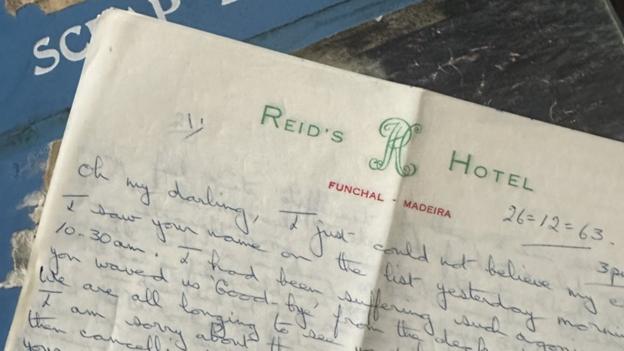 SCRAP
21/
REID'S HOTEL
FUNCHAL - MADEIRA
26=12=63.
3p
Oh my darling, I just could not believe my e
I saw your name on the list yesterday mornin
10.30am. I had been suffering such agon
you waved us Good-bye, from the deck
We are all longing to see
I am sorry about the
then cancell
you